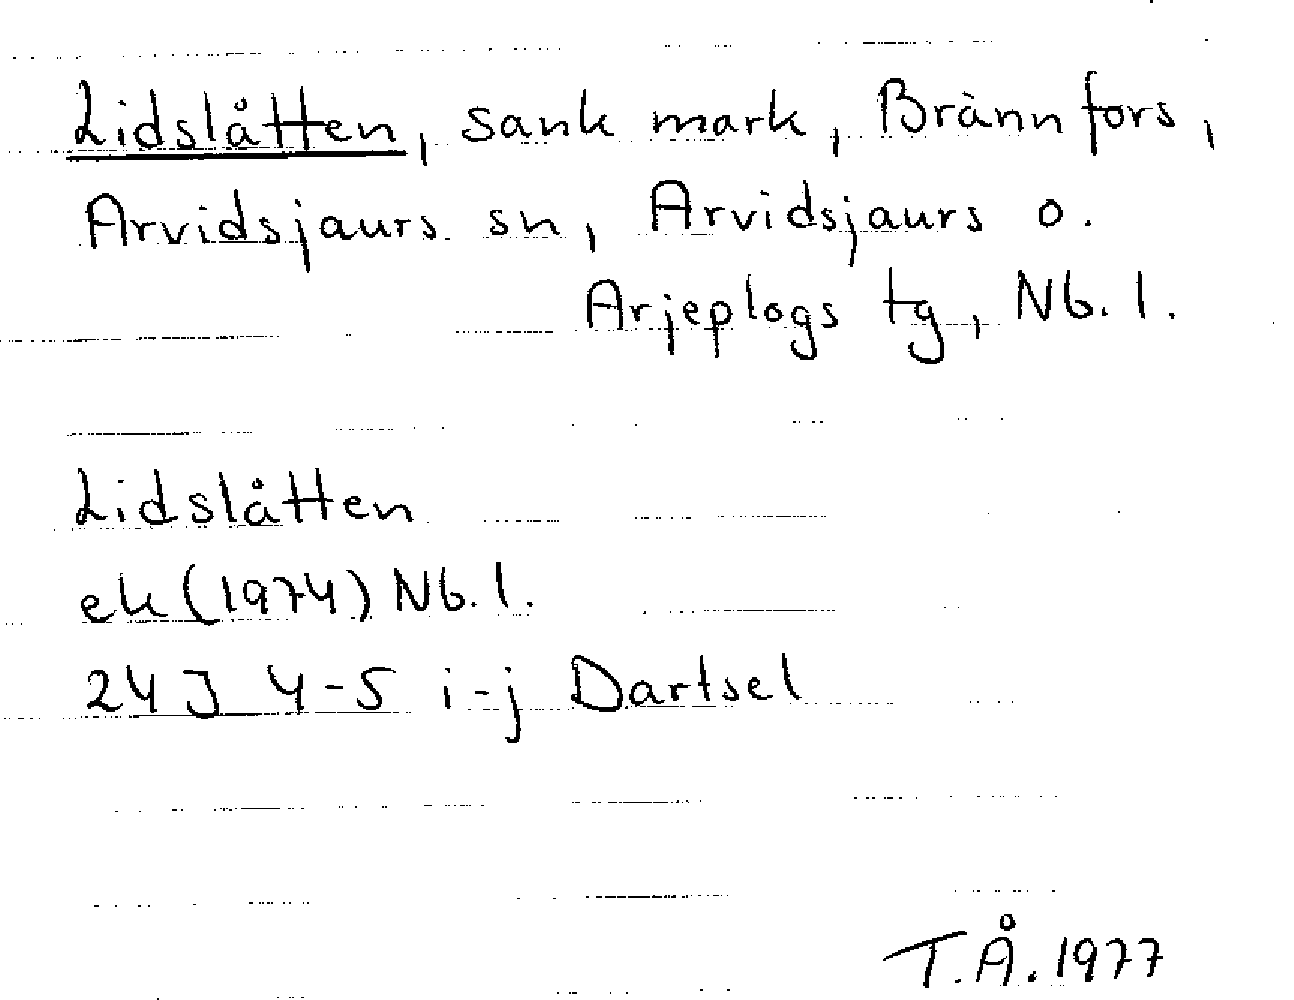 Lidslåtten, sank mark, Brännfors,
Arvidsjaurs sn, Arvidsjaurs o.
Arjeplogs tg, Nb. l.
Lidslåtten
ek (1974) Nb. l.
24 J 4-5 i-j Dartsel
T.Å. 1977